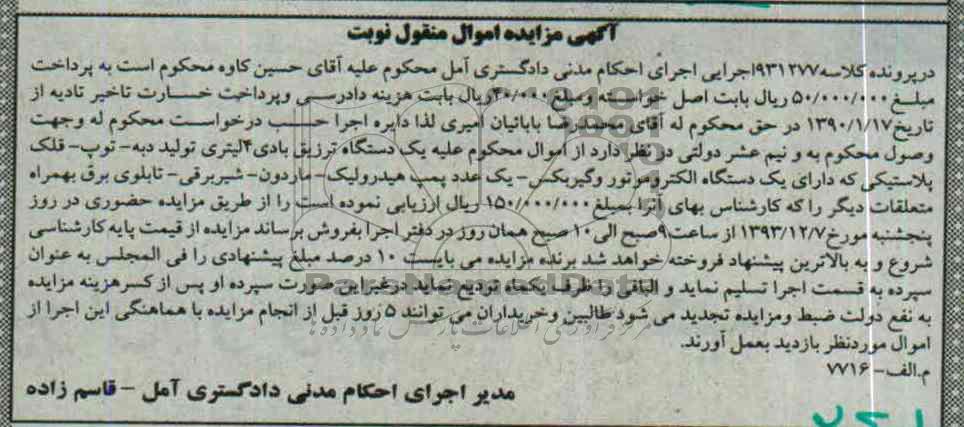 آگهی مزایده اموال منقول نوبت
درپرونده کلاسه۹۳۱۲۷۷اجرایی اجرای احکام مدنی دادگستری آمل محکوم علیه آقای حسین کاوه محکوم است به پرداخت
مبلغ ۵۰/۰۰۰/۰۰۰ ریال بابت اصل خواسته ومبلغ ۴۰/۰۰۰ریال بابت هزینه دادرسی وپرداخت خسارت تاخیر تادیه از
تاریخ۱۳۹۰/۱/۱۷ در حق محکوم له آقای محمدرضا بابائیان امیری لذا دایره اجرا حسب درخواست محکوم له وجهت
وصول محکوم به و نیم عشر دولتی در نظر دارد از اموال محکوم علیه یک دستگاه تزریق بادی۴لیتری تولید دبه- توپ- قلک
پلاستیکی که دارای یک دستگاه الکتروموتور وگیربکس- یک عدد پمپ هیدرولیک- ماردون- شیربرقی- تابلوی برق بهمراه
متعلقات دیگر را که کارشناس بهای آنرا بمبلغ ۱۵۰/۰۰۰/۰۰۰ ریال ارزیابی نموده است را از طریق مزایده حضوری در روز
پنجشنبه مورخ۱۳۹۳/۱۲/۷ از ساعت۹صبح الی۱۰ صبح همان روز در دفتر اجرا بفروش برساند مزایده از قیمت پایه کارشناسی
شروع و به بالاترین پیشنهاد فروخته خواهد شد برنده مزایده می بایست ۱۰ درصد مبلغ پیشنهادی را فی المجلس به عنوان
سپرده به قسمت اجرا تسلیم نماید و الباقی را ظرف یکماه تودیع نماید درغیراین صورت سپرده او پس از کسرهزینه مزایده
به نفع دولت ضبط ومزایده تجدید می شود طالبین وخریداران می توانند ۵ روز قبل از انجام مزایده با هماهنگی این اجرا از
اموال موردنظر بازدید بعمل آورند.
م.الف- ۷۷۱۶
مدیر اجرای احکام مدنی دادگستری آمل - قاسم زاده